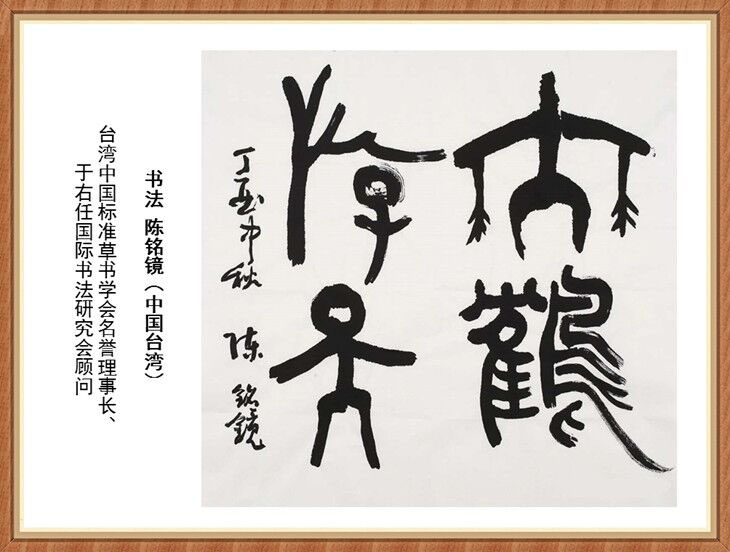 鶴
游天
中秋 陳銘鏡
书法 陈铭镜（中国台湾）
台湾中国标准草书学会名誉理事长、
于右任国际书法研究会顾问